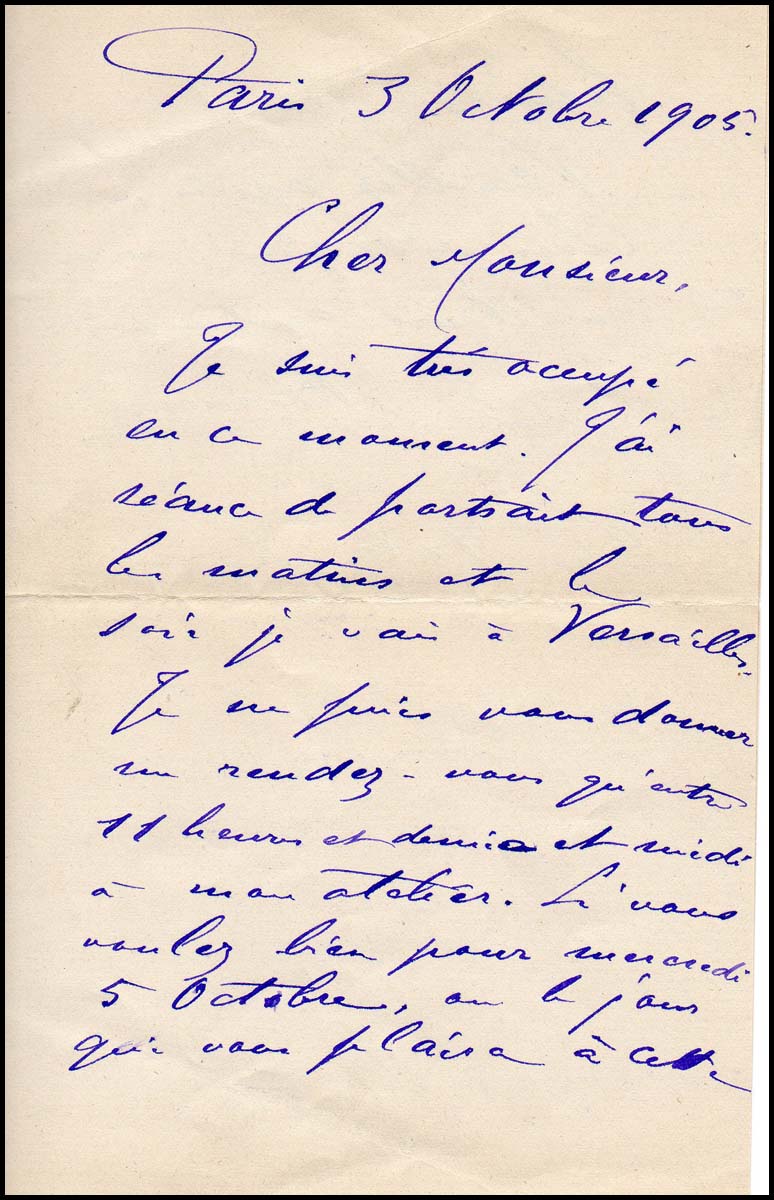 Paris 3 Octobre 1905.
Cher Monsieur,
Je suis très occupé
en ce moment. J'ai
séance de portrait tous
les matins et le
soir je vais à Versailles.
Je ne puis vous donner
un rendez-vous qu'entre
11 heures et demie et midi
à mon atelier. Si vous
voulez bien pour mercredi
5 Octobre, ou le jour
qui vous plaira à cette